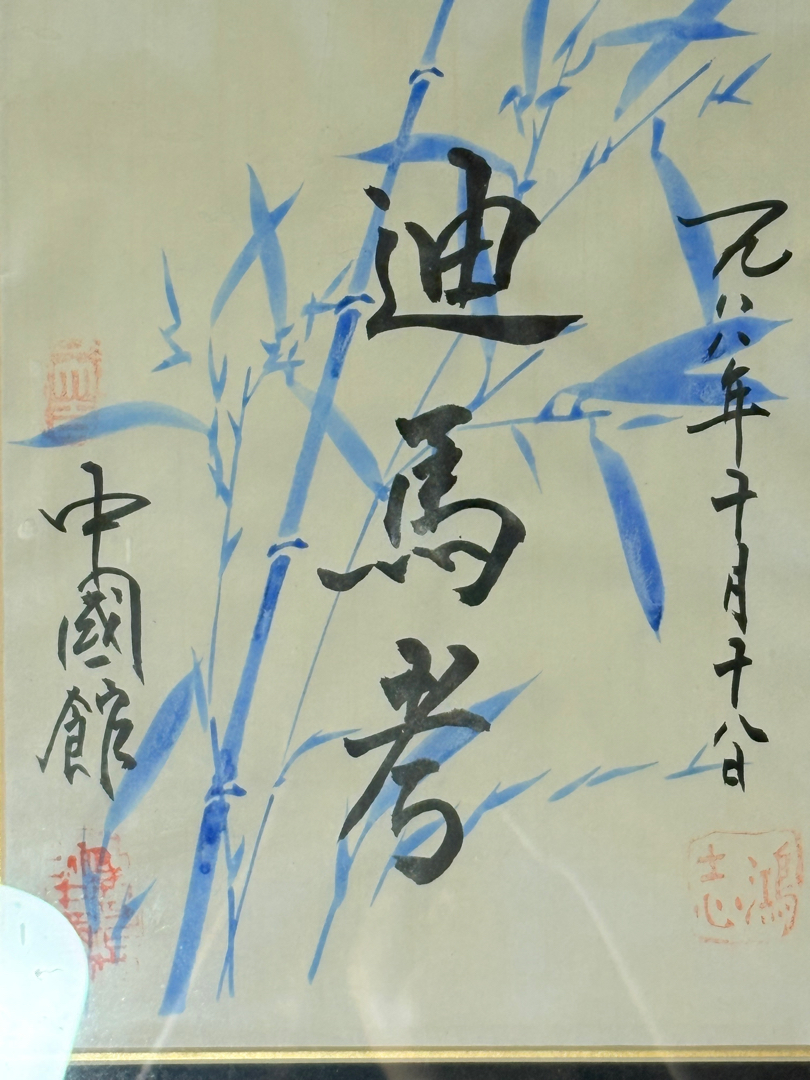 一九八八年十月十八日
迪馬考
中國館
鴻志